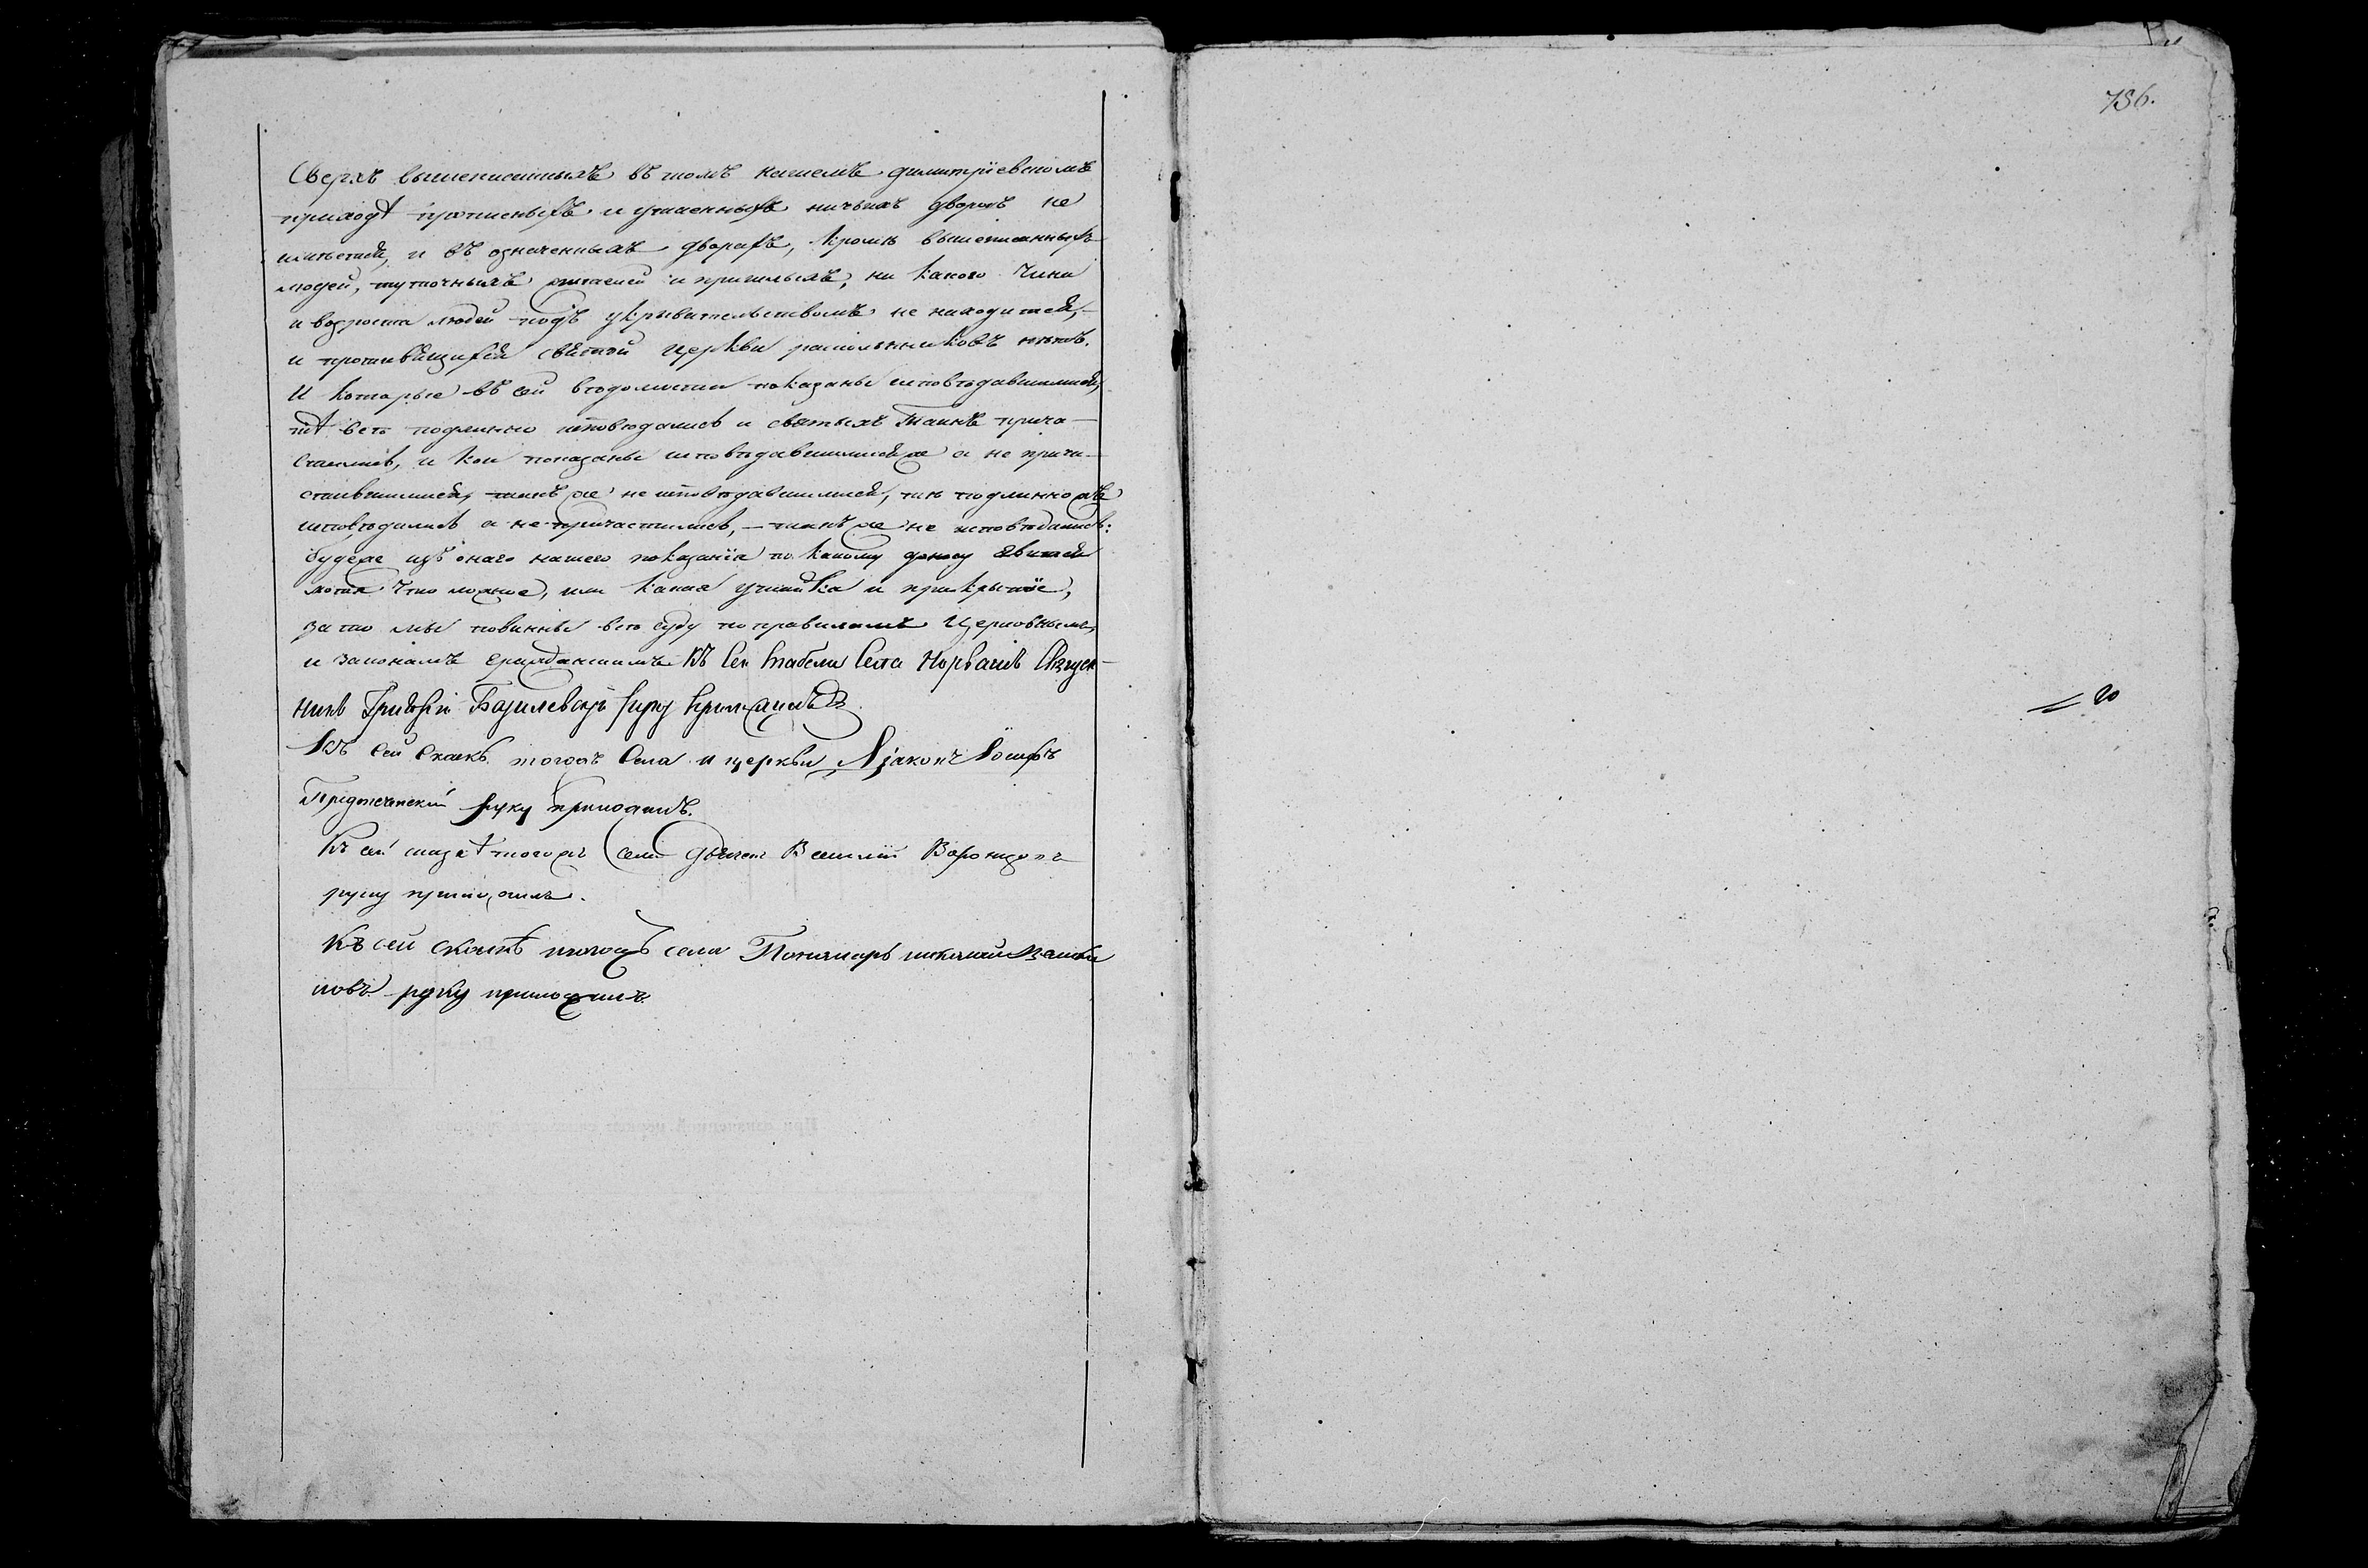 Сверхъ вышеписанныхъ въ томъ нашемъ Димитрiевскомъ
приходѣ прописныхъ и утаенныхъ ничьихъ дворовъ не
имѣется, и въ означенныхъ дворахъ, кромѣ вышеписанныхъ
людей, туточныхъ жителей и пришлыхъ, ни какого чина
и возроста людей подъ укрывательствомъ не находится,
и противящихся святой церкви раскольниковъ нѣтъ.
И которые въ сей вѣдомости показаны исповѣдавшимися,
тѣ всѣ подлинно исповѣдались и святыхъ Таинъ прича-
стились, и кои показаны исповѣдавшимися же а не прича-
стившимися, такъ же не исповѣдавшимися, тѣ подлинно жъ
исповѣдались а не причастились, – такъ же не исповѣдались:
буде же изъ онаго нашего показанiя по какому доносу явится
хотя что ложное, или какая утайка и прикрытiе,
за то мы повинны всѣ суду по правиламъ Церковнымъ,
и законамъ гражданскимъ Къ Сей табели Села Священ-
никъ Григорiй Базилевскiй руку приложилъ
Къ сей Сказкѣ тогожъ Села и церкви Дiаконъ Iосифъ
Предтеченскiй руку приложилъ.
Къ сей сказкѣ тогожъ Села дьячекъ Василiй
руку приложилъ.
Къ сей сказкѣ тогожъ села Пономарь
новъ руку приложилъ
756.